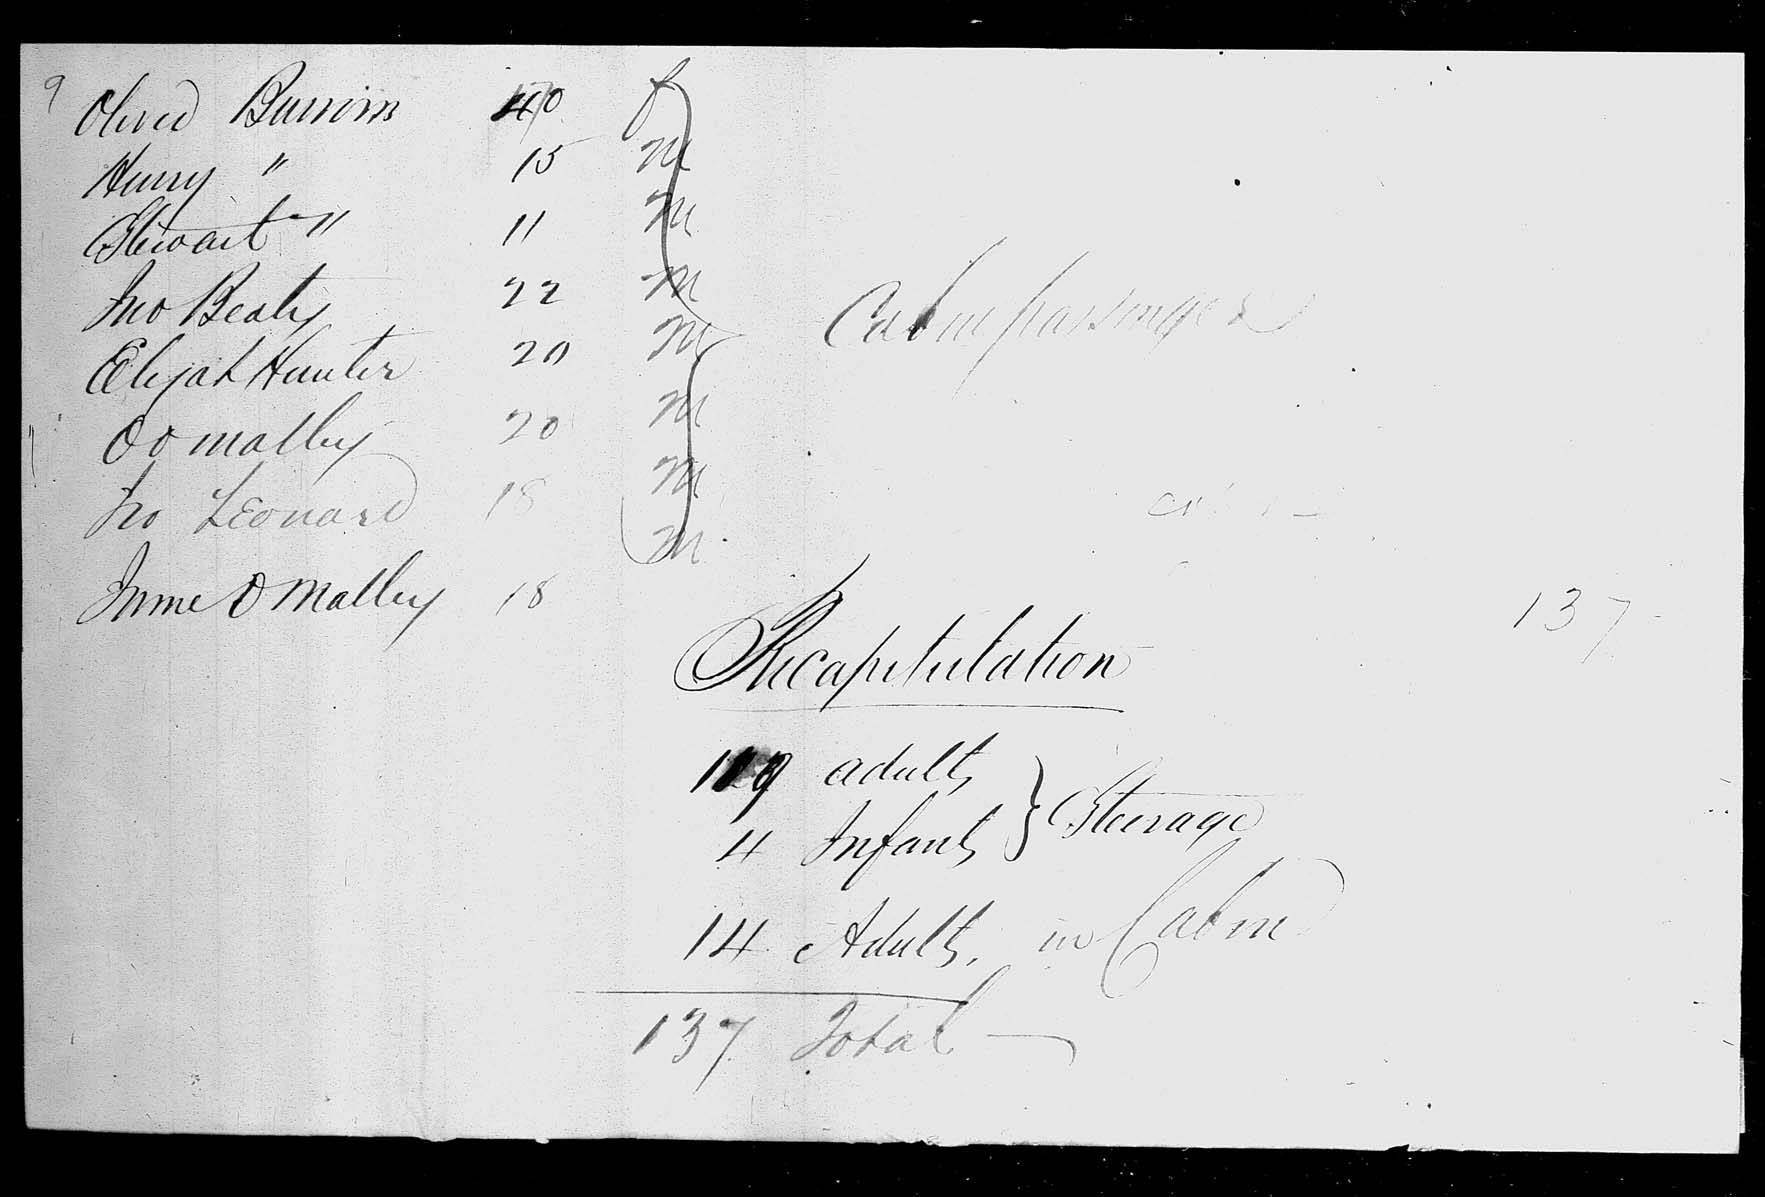 9
Burrows 40 f
Harry " 15 M
Stewart " 11 M
Jno Beaty 22 M
Elijah Hunter 20 M
O O malley 20 M
Jno Leonard 18 M
O Malley 18 M
Cabin passengers
137
Recapitulation
119 adults
4 Infants } Steerage
14 Adults, in Cabin
137 Total —